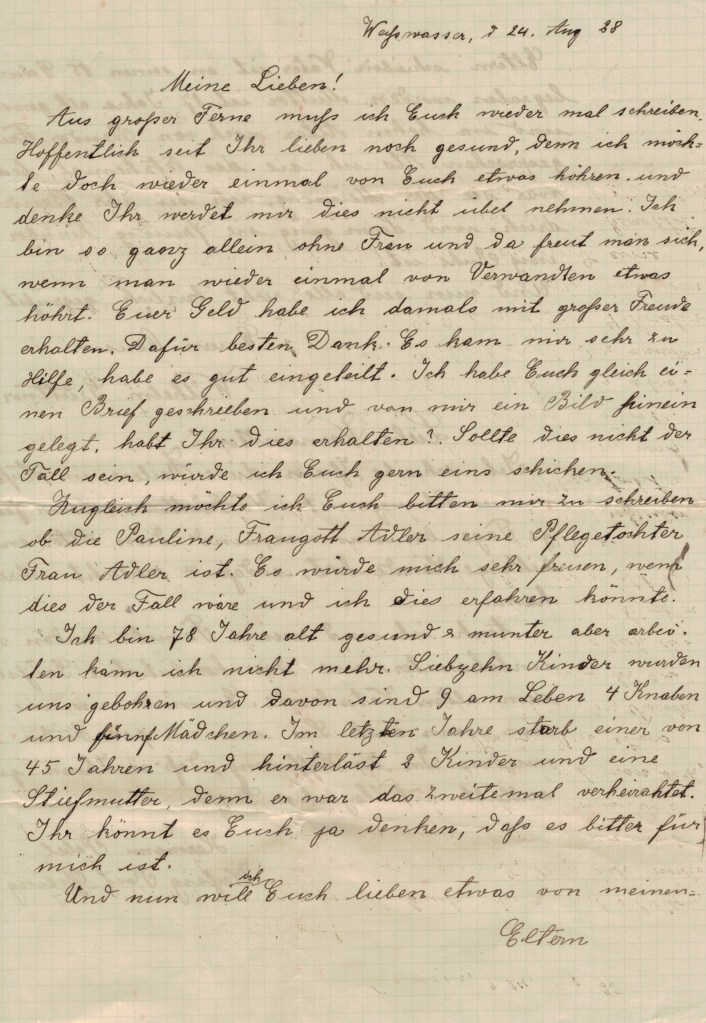 Weißwasser, d 24. Aug 28
Meine Lieben!
Aus großer Ferne muß ich Euch wieder mal schreiben.
Hoffentlich seit Ihr lieben noch gesund, denn ich möch=
te doch wieder einmal von Euch etwas höhren. und
denke Ihr werdet mir dies nicht übel nehmen. Ich
bin so ganz allein ohne Frau und da freut man sich,
wenn man wieder einmal von Verwandten etwas
höhrt. Euer Geld habe ich damals mit großer Freude
erhalten. Dafür besten Dank. Es kam mir sehr zu
Hilfe, habe es gut eingeteilt. Ich habe Euch gleich ei-
nen Brief geschrieben und von mir ein Bild hinein
gelegt, habt Ihr dies erhalten?. Sollte dies nicht der
Fall sein, würde ich Euch gern eins schicken.
Zugleich möchte ich Euch bitten mir zu schreiben
ob die Pauline, Traugott Adler seine Pflegetochter
Frau Adler ist. Es würde mich sehr freuen, wenn
dies der Fall wäre und ich dies erfahren könnte.
Ich bin 78 Jahre alt gesund & munter aber arbei-
ten kann ich nicht mehr. Siebzehn Kinder wurden
uns gebohren und davon sind 9 am Leben 4 Knaben
und fünf Mädchen. Im letzten Jahre starb einer von
45 Jahren und hinterläst 3 Kinder und eine
Stiefmutter, denn er war das zweitemal verheirahtet.
Ihr könnt es Euch ja denken, daß es bitter für
mich ist.
Und nun will ich Euch lieben etwas von meinen=
Eltern